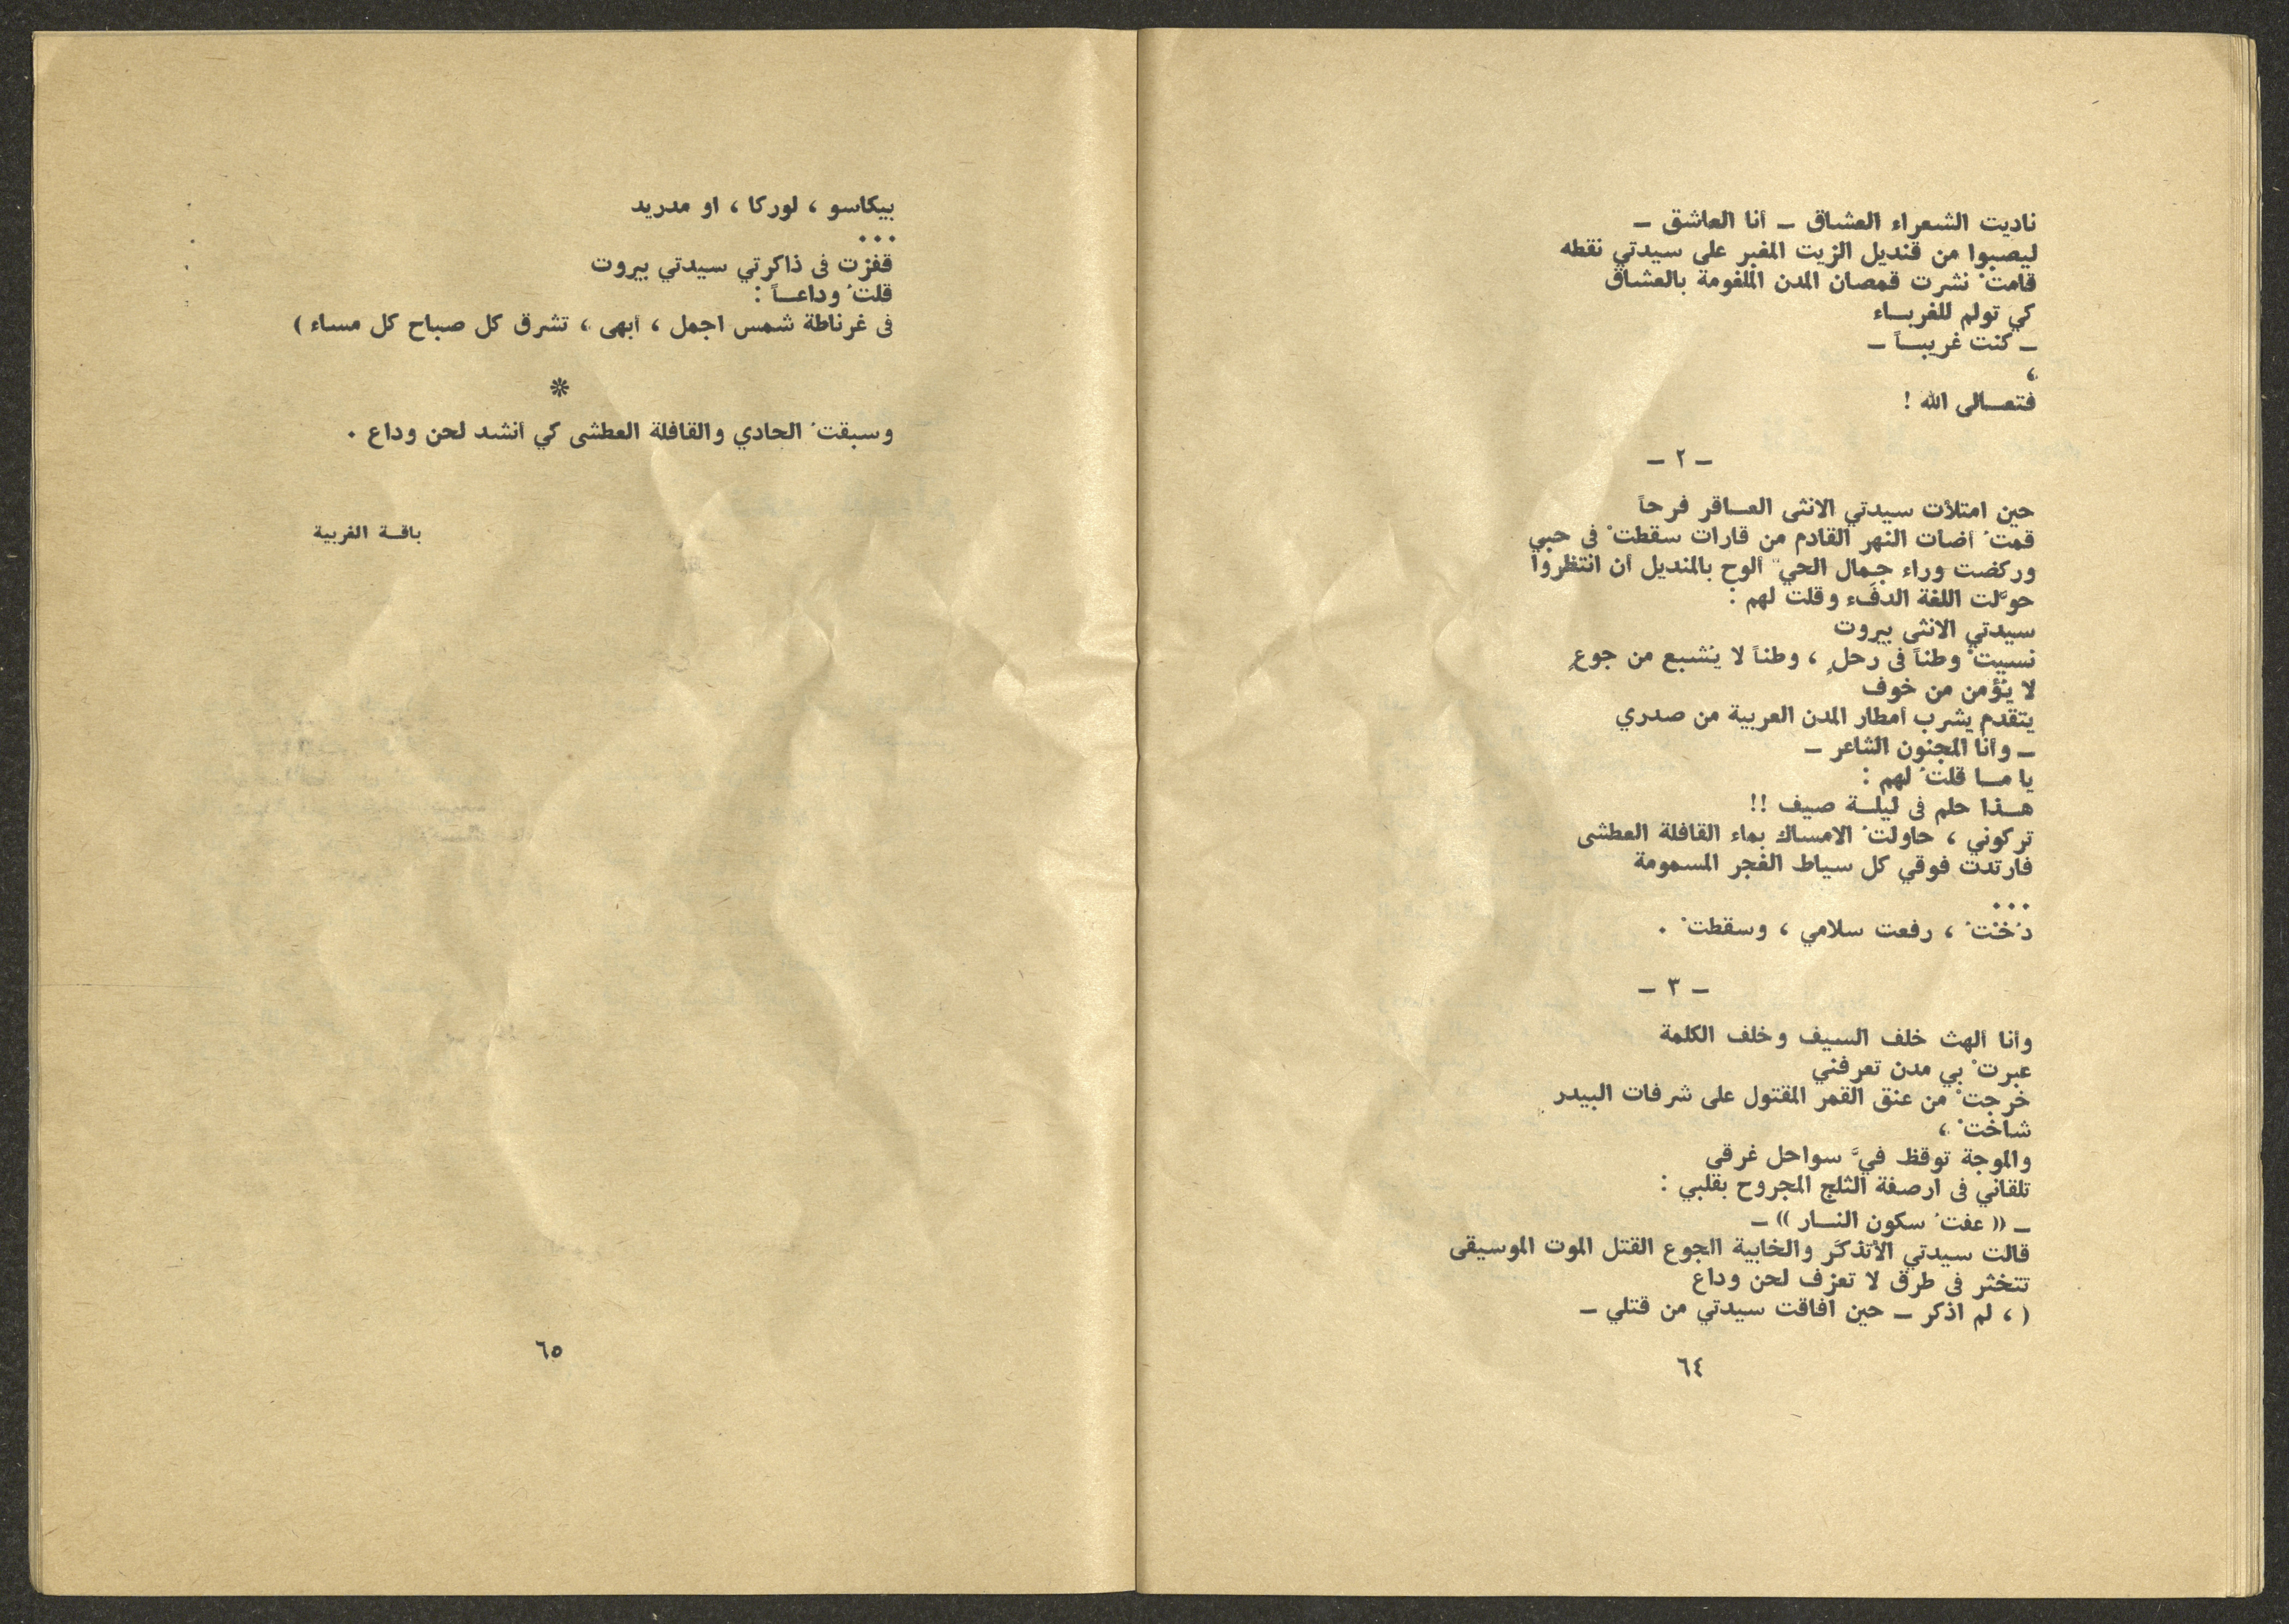 ناديت الشعراء العشاق ـ أنا العاشق ـ
ليصبوا من قنديل الزيت المغبر على سيدتي نقطه
قامتْ نشرت قمصان المدن الملغومة بالعشاق
كي تولم للغربـاء
ـ كنت غريبـاً ـ
،
فتعـالى الله !
ـ ٢ ـ
حين امتلأت سيدتي الانثى العـاقر فرحاً
قمتُ أضات النهر القادم من قارات سقطتْ في حبي
وركضت وراء جمال الحيّ ألوح بالمنديل أن انتظروا
حوَّلت اللغة الدفء وقلت لهم :
سيدتي الانثى بيروت
نسيتْ وطناً في رحلٍ ، وطناً لا يُشبع من جوعٍ
لا يُؤمن من خوف
يتقدم يشرب أمطار المدن العربية من صدري
ـ وأنا المجنون الشاعر ـ
يا مـا قلتُ لهم :
هـذا حلم في ليلـة صيف !!
تركوني ، حاولتُ الامساك بماء القافلة العطشى
فارتدت فوقي كل سياط الفجر المسمومة
...
دُخْتُ ، رفعت سلامي ، وسقطتْ .
ـ ٣ ـ
وأنا ألهث خلف السيف وخلف الكلمة
عبرتْ بي مدن تعرفني
خرجتْ من عنق القمر المقتول على شرفات البيدر
شاختْ ،
والموجة توقظ فيَّ سواحل غرقى
تلقاني في ارصفة الثلج المجروح بقلبي :
ـ (( عفتُ سكون النـار )) ـ
قالت سيدتي الأتذكَّر والخابية الجوع القتل الموت الموسيقى
تتخثر في طرق لا تعزف لحن وداع
( ، لم اذكر ـ حين افاقت سيدتي من قتلي ـ
٦٤
بيكاسو ، لوركا ، او مدريد
...
قفزت في ذاكرتي سيدتي بيروت
قلتُ وداعـاً :
في غرناطة شمس اجمل ، أبهى ، تشرق كل صباح كل مساء )
*
وسبقتُ الحادي والقافلة العطشى كي أنشد لحن وداع .
باقـة الغربية
٦٥